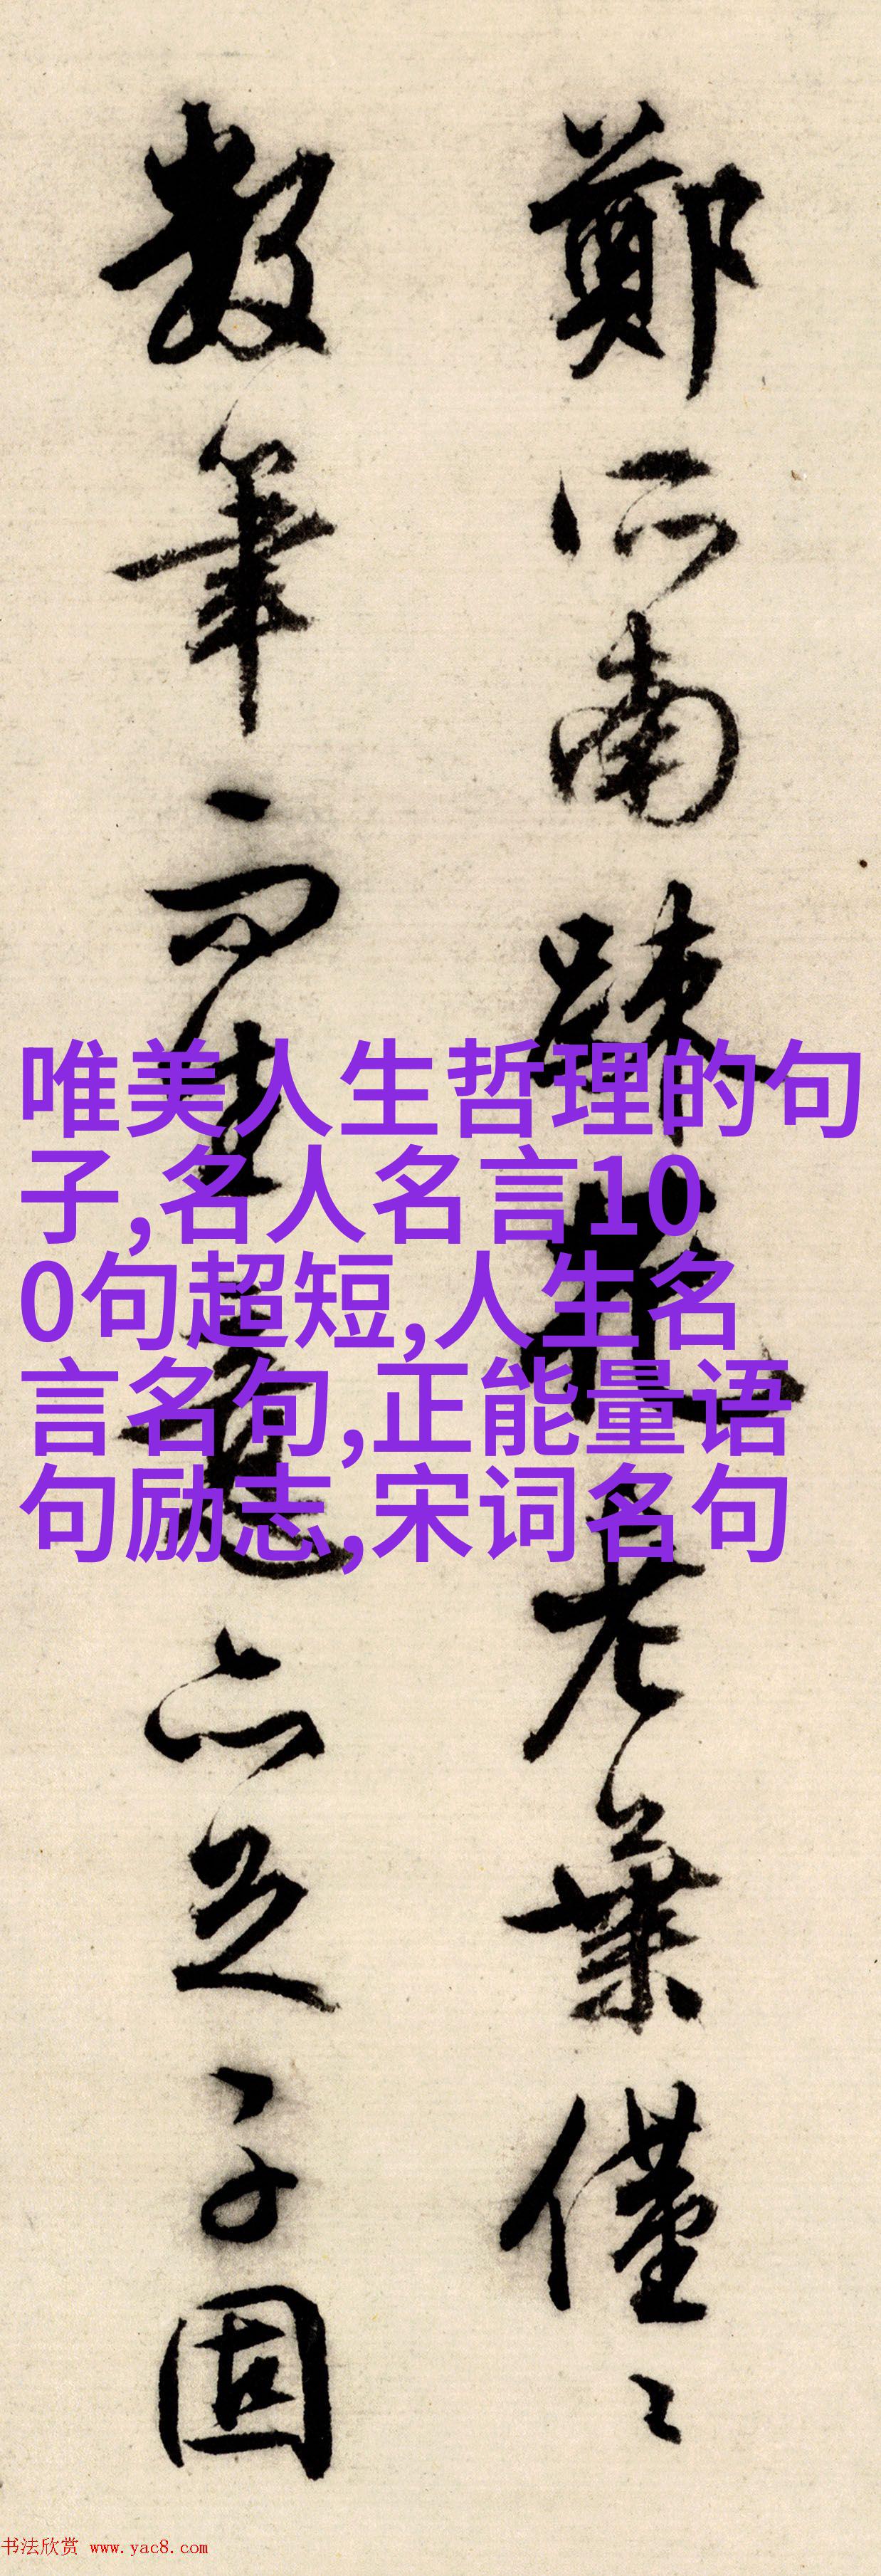 鄭所南疎老葉僅々
數筆而生意亦足予固
唯美人生哲理的句
子,名人名言10
0句超短,人生名
言名句,正能量语
句励志,宋词名句
书法欣赏 www.yac8.com